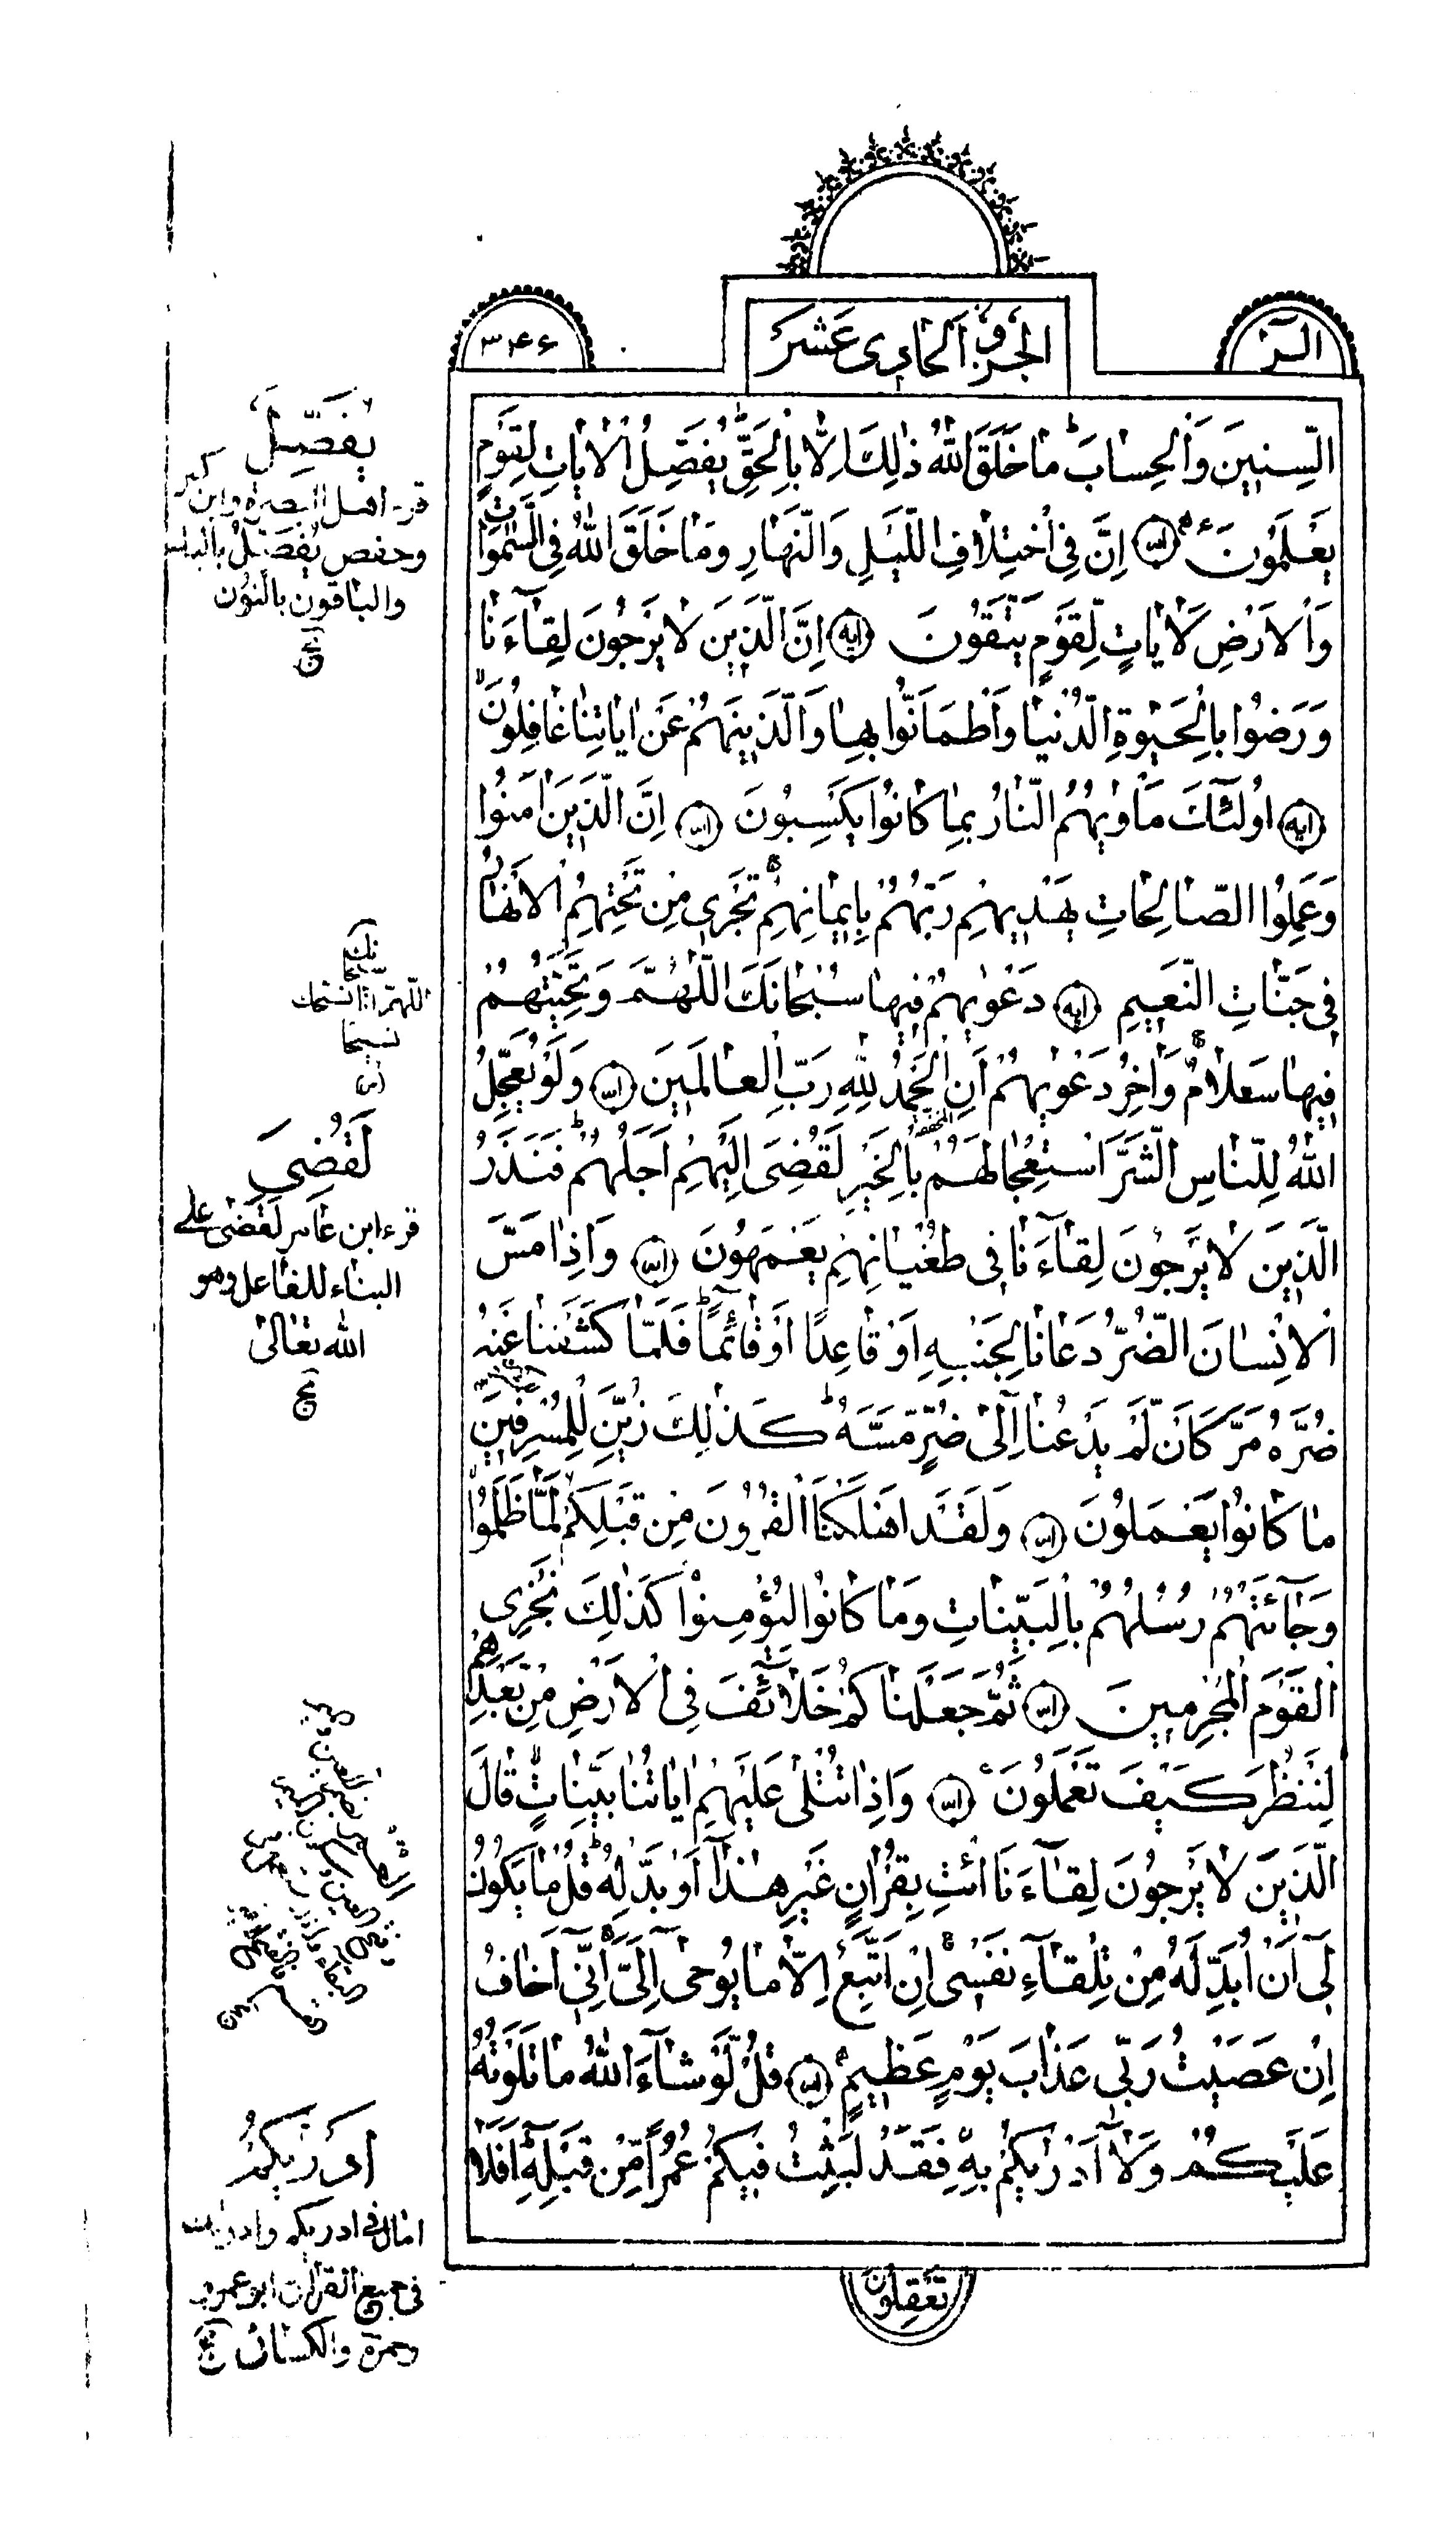 الـرٓ
الجزو الحادی عشر
۳۴۶
السِّنِينَ وَالْحِسابَ ؕ ما خَلَقَ اللّٰهُ ذٰلِكَ اِلّٰا بِالْحَقِّ ؕ يُفَصِّلُ الْاٰياتِ لِقَوْمٍ
يَعْلَمُونَ ايه اِنَّ فِى اخْتِلافِ اللَّيْلِ وَالنَّهارِ وَما خَلَقَ اللّٰهُ فِى السَّمٰوٰاتِ
وَالْاَرْضِ لَاٰياتٍ لِقَوْمٍ يَتَّقُونَ ايه اِنَّ الَّذِينَ لا يَرْجُونَ لِقآءَنا
وَرَضُوا بِالْحَيٰوةِ الدُّنْيا وَاطْمَاَنُّوا بِها وَالَّذِينَ هُمْ عَنْ اٰياتِنا غافِلُونَ
ايه اُولٰٓئِكَ مَاْوٰيهُمُ النّارُ بِما كانُوا يَكْسِبُونَ ايه اِنَّ الَّذِينَ اٰمَنُوا
وَعَمِلُوا الصّالِحاتِ يَهْدِيهِمْ رَبُّهُمْ بِاِيمانِهِمْ تَجْرِى مِنْ تَحْتِهِمُ الْاَنْهارُ
فِى جَنّاتِ النَّعِيمِ ايه دَعْوٰيهُمْ فِيها سُبْحانَكَ اللّٰهُمَّ وَتَحِيَّتُهُمْ
فِيها سَلامٌ وَاٰخِرُ دَعْوٰيهُمْ اَنِ الْحَمْدُ لِلّٰهِ رَبِّ الْعالَمِينَ ايه وَلَوْ يُعَجِّلُ
اللّٰهُ لِلنّاسِ الشَّرَّ اسْتِعْجالَهُمْ بِالْخَيْرِ لَقُضِىَ اِلَيْهِمْ اَجَلُهُمْ ؕ فَنَذَرُ
الَّذِينَ لا يَرْجُونَ لِقآءَنا فِى طُغْيانِهِمْ يَعْمَهُونَ ايه وَاِذا مَسَّ
الْاِنْسانَ الضُّرُّ دَعانا لِجَنْبِهِ اَوْ قاعِدًا اَوْ قآئِمًا ؕ فَلَمّا كَشَفْنا عَنْهُ
ضُرَّهُ مَرَّ كَاَنْ لَمْ يَدْعُنا اِلٰى ضُرٍّ مَسَّهُ ؕ كَذٰلِكَ زُيِّنَ لِلْمُسْرِفِينَ
ما كانُوا يَعْمَلُونَ ايه وَلَقَدْ اَهْلَكْنَا الْقُرُونَ مِنْ قَبْلِكُمْ لَمّا ظَلَمُوا
وَجآئَتْهُمْ رُسُلُهُمْ بِالْبَيِّناتِ وَما كانُوا لِيُؤْمِنُوا كَذٰلِكَ نَجْزِى
الْقَوْمَ الْمُجْرِمِينَ ايه ثُمَّ جَعَلْناكُمْ خَلآئِفَ فِى الْاَرْضِ مِنْ بَعْدِهِمْ
لِنَنْظُرَ كَيْفَ تَعْمَلُونَ ايه وَاِذا تُتْلٰى عَلَيْهِمْ اٰياتُنا بَيِّناتٍ قالَ
الَّذِينَ لا يَرْجُونَ لِقآءَنَا ائْتِ بِقُرْاٰنٍ غَيْرِ هٰذآ اَوْ بَدِّلْهُ ؕ قُلْ ما يَكُونُ
لِىٓ اَنْ اُبَدِّلَهُ مِنْ تِلْقآءِ نَفْسِى اِنْ اَتَّبِعُ اِلّا ما يُوحٰىٓ اِلَىَّ اِنِّىٓ اَخافُ
اِنْ عَصَيْتُ رَبِّى عَذابَ يَوْمٍ عَظِيمٍ ايه قُلْ لَوْ شآءَ اللّٰهُ ما تَلَوْتُهُ
عَلَيْكُمْ وَلآ اَدْرٰيكُمْ بِهِ فَقَدْ لَبِثْتُ فِيكُمْ عُمُرًا مِنْ قَبْلِهِ اَفَلا
تَعْقِلُونَ
يُفَصِّلُ
قرء اهل البصرة وابن كثير
وحفص يُفَصِّلُ بالياء
والباقون بالنون
لَقُضِىَ
قرء ابن عامر لَقَضٰى على
البناء للفاعل وهو
الله تعالى
اَدْرٰيكُمْ
امال فى ادريكم وادريك
فى جميع القران ابو عمرو
وحمزة والكسائى